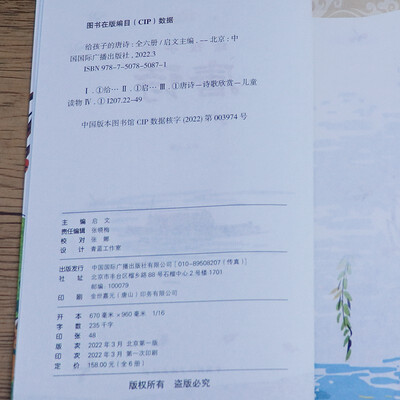 图书在版编目（CIP）数据
给孩子的唐诗：全六册/启文主编. -- 北京：中
国国际广播出版社，2022.3
ISBN 978-7-5078-5087-1
Ⅰ. ①给… Ⅱ. ①启… Ⅲ. ①唐诗-诗歌欣赏-儿童
读物 Ⅳ. ①I207.22-49
中国版本图书馆CIP数据核字（2022）第003974号
主 编 启 文
责任编辑 张晓梅
校 对 张 娜
设 计 青蓝工作室
出版发行 中国国际广播出版社有限公司 [010-89508207（传真）]
社 址 北京市丰台区榴乡路88号石榴中心2号楼1701
邮编：100079
印 刷 金世嘉元（唐山）印务有限公司
开 本 670毫米×960毫米 1/16
字 数 235千字
印 张 48
版 次 2022年3月 北京第一版
印 次 2022年3月 第一次印刷
定 价 158.00元（全6册）
版权所有 盗版必究